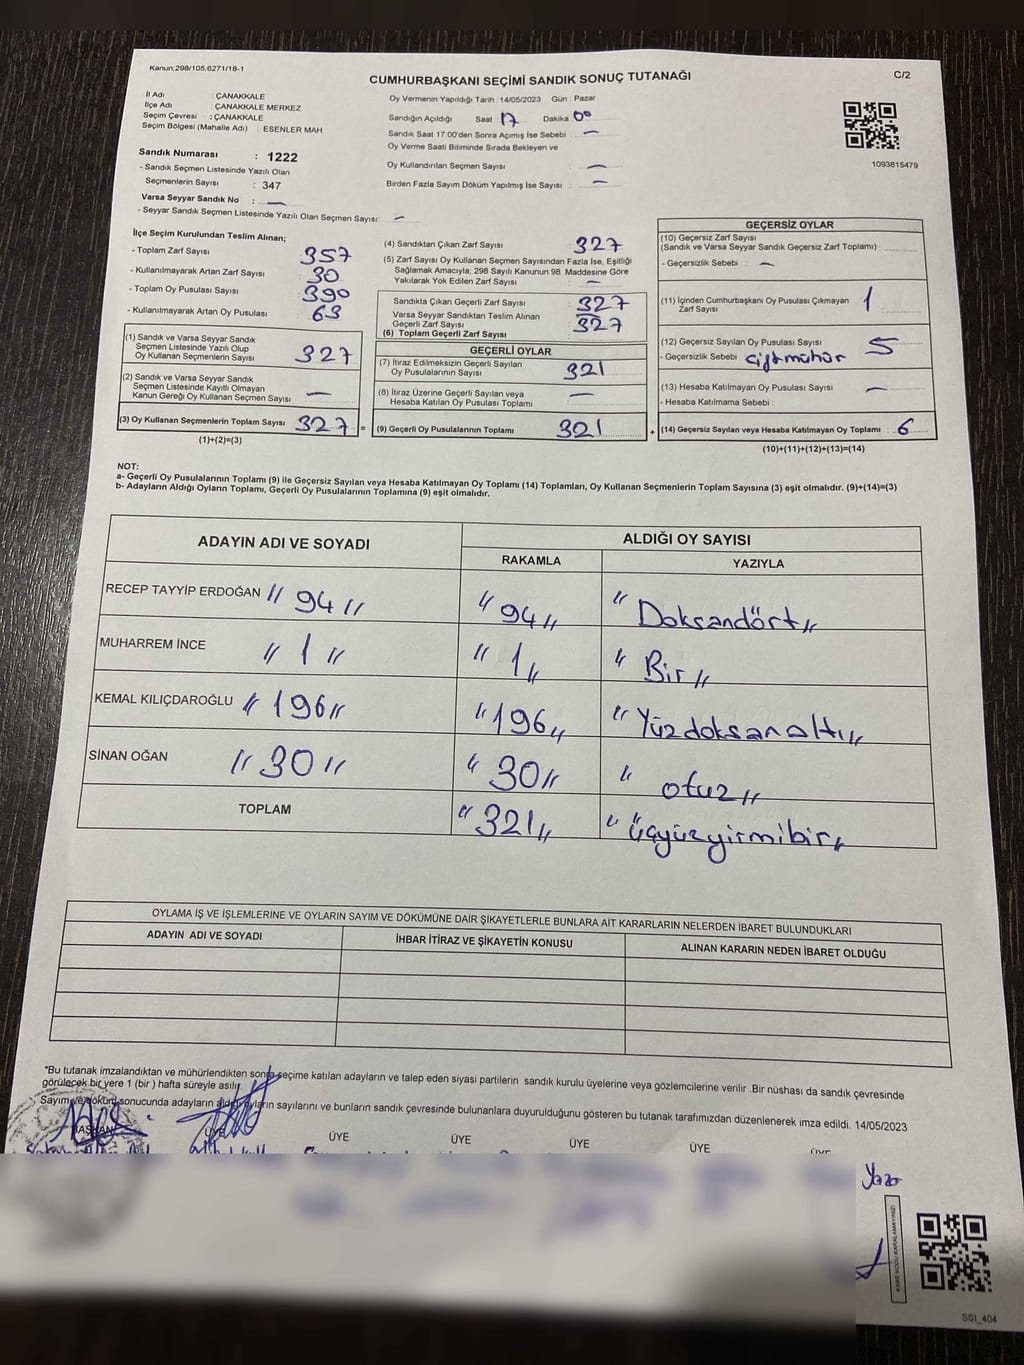 Kanun,298/105,6271/18-1
CUMHURBAŞKANI SEÇİMİ SANDIK SONUÇ TUTANAĞI
C/2
İl Adı : ÇANAKKALE
İlçe Adı : ÇANAKKALE MERKEZ
Seçim Çevresi : ÇANAKKALE
Seçim Bölgesi (Mahalle Adı) : ESENLER MAH
Sandık Numarası : 1222
- Sandık Seçmen Listesinde Yazılı Olan
Seçmenlerin Sayısı : 347
Varsa Seyyar Sandık No : —
- Seyyar Sandık Seçmen Listesinde Yazılı Olan Seçmen Sayısı: —
Oy Vermenin Yapıldığı Tarih : 14/05/2023 Gün : Pazar
Sandığın Açıldığı Saat 17 Dakika 00
Sandık Saat 17:00'den Sonra Açımış İse Sebebi : —
Oy Verme Saati Bitiminde Sırada Bekleyen ve
Oy Kullandırılan Seçmen Sayısı : —
Birden Fazla Sayım Döküm Yapılmış İse Sayısı : —
1093815479
İlçe Seçim Kurulundan Teslim Alınan;
- Toplam Zarf Sayısı : 357
- Kullanılmayarak Artan Zarf Sayısı : 30
- Toplam Oy Pusulası Sayısı : 390
- Kullanılmayarak Artan Oy Pusulası : 63
(1) Sandık ve Varsa Seyyar Sandık
Seçmen Listesinde Yazılı Olup
Oy Kullanan Seçmenlerin Sayısı : 327
(2) Sandık ve Varsa Seyyar Sandık
Seçmen Listesinde Kayıtlı Olmayan
Kanun Gereği Oy Kullanan Seçmen Sayısı : —
(3) Oy Kullanan Seçmenlerin Toplam Sayısı : 327 =
(1)+(2)=(3)
(4) Sandıktan Çıkan Zarf Sayısı : 327
(5) Zarf Sayısı Oy Kullanan Seçmen Sayısından Fazla İse, Eşitliği
Sağlamak Amacıyla; 298 Sayılı Kanunun 98. Maddesine Göre
Yakılarak Yok Edilen Zarf Sayısı : —
Sandıkta Çıkan Geçerli Zarf Sayısı : 327
Varsa Seyyar Sandıktan Teslim Alınan
Geçerli Zarf Sayısı : —
(6) Toplam Geçerli Zarf Sayısı : 327
GEÇERLİ OYLAR
(7) İtiraz Edilmeksizin Geçerli Sayılan
Oy Pusulalarının Sayısı : 321
(8) İtiraz Üzerine Geçerli Sayılan veya
Hesaba Katılan Oy Pusulası Toplamı : —
(9) Geçerli Oy Pusulalarının Toplamı : 321 +
GEÇERSİZ OYLAR
(10) Geçersiz Zarf Sayısı
(Sandık ve Varsa Seyyar Sandık Geçersiz Zarf Toplamı) :
- Geçersizlik Sebebi : —
(11) İçinden Cumhurbaşkanı Oy Pusulası Çıkmayan
Zarf Sayısı : 1
(12) Geçersiz Sayılan Oy Pusulası Sayısı : 5
- Geçersizlik Sebebi : çift mühür
(13) Hesaba Katılmayan Oy Pusulası Sayısı : —
- Hesaba Katılmama Sebebi :
(14) Geçersiz Sayılan veya Hesaba Katılmayan Oy Toplamı : 6
(10)+(11)+(12)+(13)=(14)
NOT:
a- Geçerli Oy Pusulalarının Toplamı (9) ile Geçersiz Sayılan veya Hesaba Katılmayan Oy Toplamı (14) Toplamları, Oy Kullanan Seçmenlerin Toplam Sayısına (3) eşit olmalıdır. (9)+(14)=(3)
b- Adayların Aldığı Oyların Toplamı, Geçerli Oy Pusulalarının Toplamına (9) eşit olmalıdır.
ADAYIN ADI VE SOYADI ALDIĞI OY SAYISI
RAKAMLA YAZIYLA
RECEP TAYYİP ERDOĞAN "94" "94" "Doksandört"
MUHARREM İNCE "1" "1" "Bir"
KEMAL KILIÇDAROĞLU "196" "196" "Yüzdoksanaltı"
SİNAN OĞAN "30" "30" "otuz"
TOPLAM "321" "üçyüzyirmibir"
OYLAMA İŞ VE İŞLEMLERİNE VE OYLARIN SAYIM VE DÖKÜMÜNE DAİR ŞİKAYETLERLE BUNLARA AİT KARARLARIN NELERDEN İBARET BULUNDUKLARI
ADAYIN ADI VE SOYADI İHBAR İTİRAZ VE ŞİKAYETİN KONUSU ALINAN KARARIN NEDEN İBARET OLDUĞU
*Bu tutanak imzalandıktan ve mühürlendikten sonra seçime katılan adayların ve talep eden siyasi partilerin sandık kurulu üyelerine veya gözlemcilerine verilir .Bir nüshası da sandık çevresinde
görülecek bir yere 1 (bir ) hafta süreyle asılır.
Sayım ve döküm sonucunda adayların aldığı oyların sayılarını ve bunların sandık çevresinde bulunanlara duyurulduğunu gösteren bu tutanak tarafımızdan düzenlenerek imza edildi. 14/05/2023
BAŞKAN ÜYE ÜYE ÜYE ÜYE ÜYE ÜYE
SSI_404